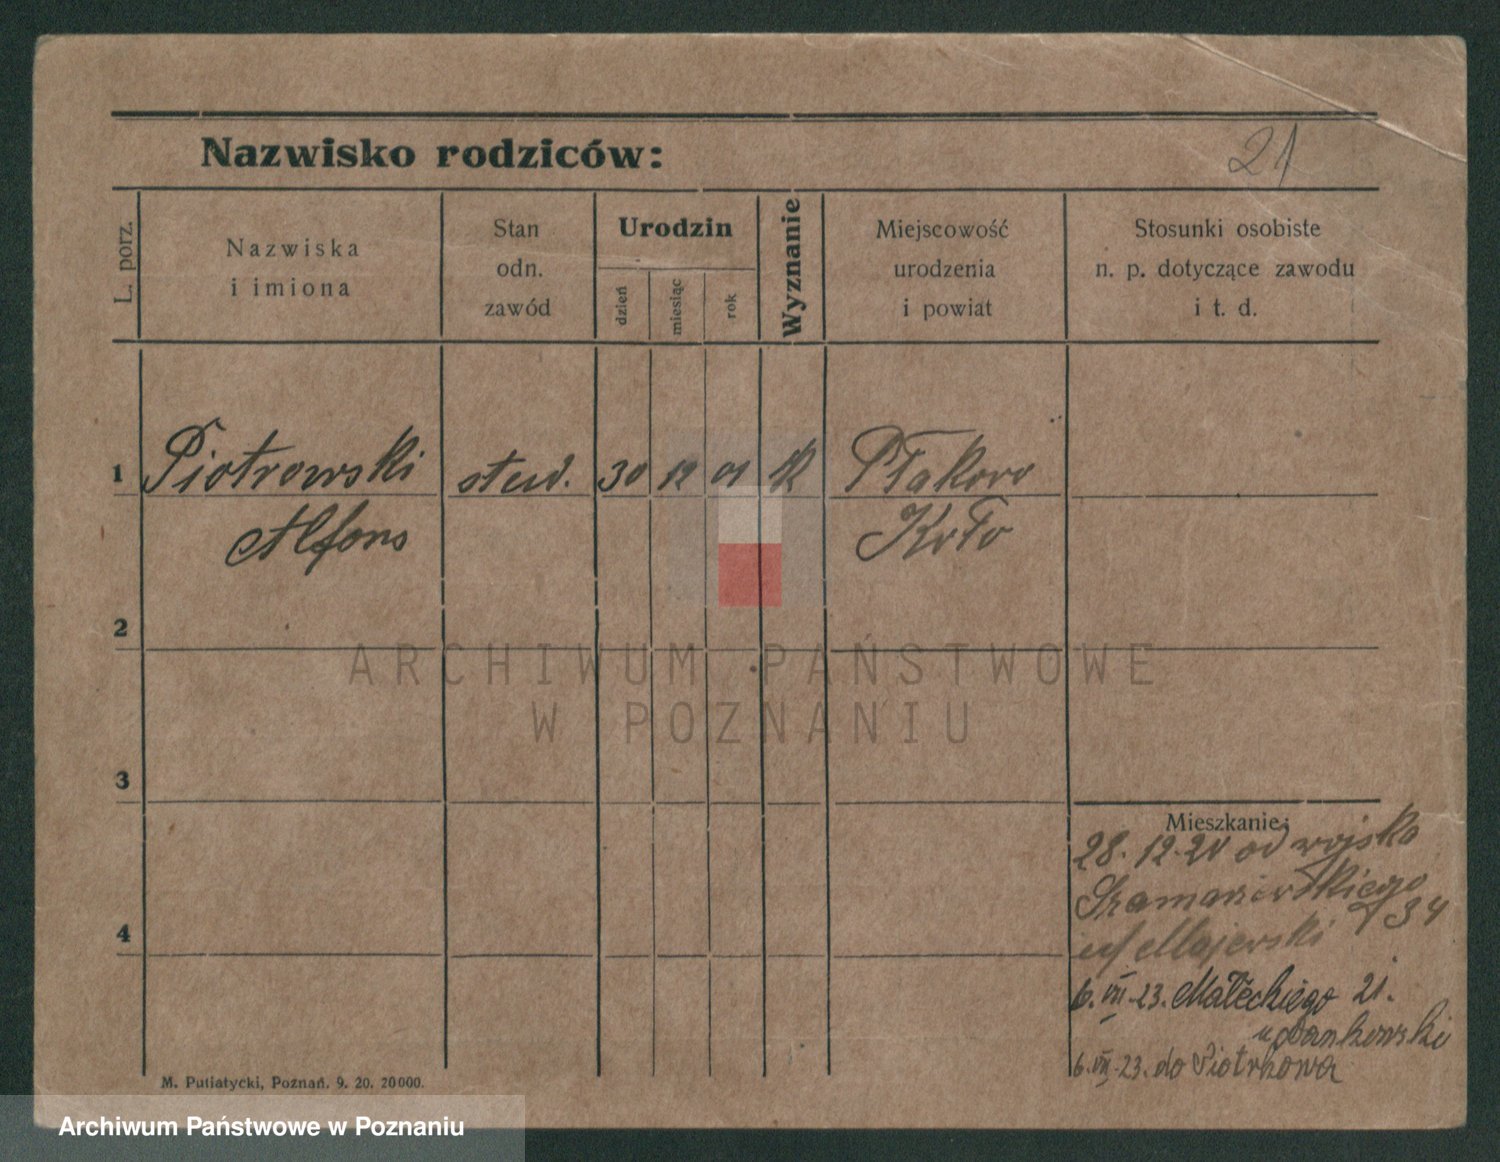 21
Nazwisko rodziców:
L. porz.
Nazwiska
i imiona
Stan
odn.
zawód
Urodzin
dzień
miesiąc
rok
Wyznanie
Miejscowość
urodzenia
i powiat
Stosunki osobiste
n. p. dotyczące zawodu
i t. d.
1 Piotrowski stud. 30 12 01 k Ptakowo
Alfons Koło
2
ARCHIWUM PAŃSTWOWE
W POZNANIU
3
Mieszkanie:
28.12.20 od wojska
Szamarzewskiego 34
4
Majewski
6.VII.23. Małeckiego 21.
6.VII.23. do Piotrkowa
M. Putiatycki, Poznań. 9. 20. 20000.
Archiwum Państwowe w Poznaniu